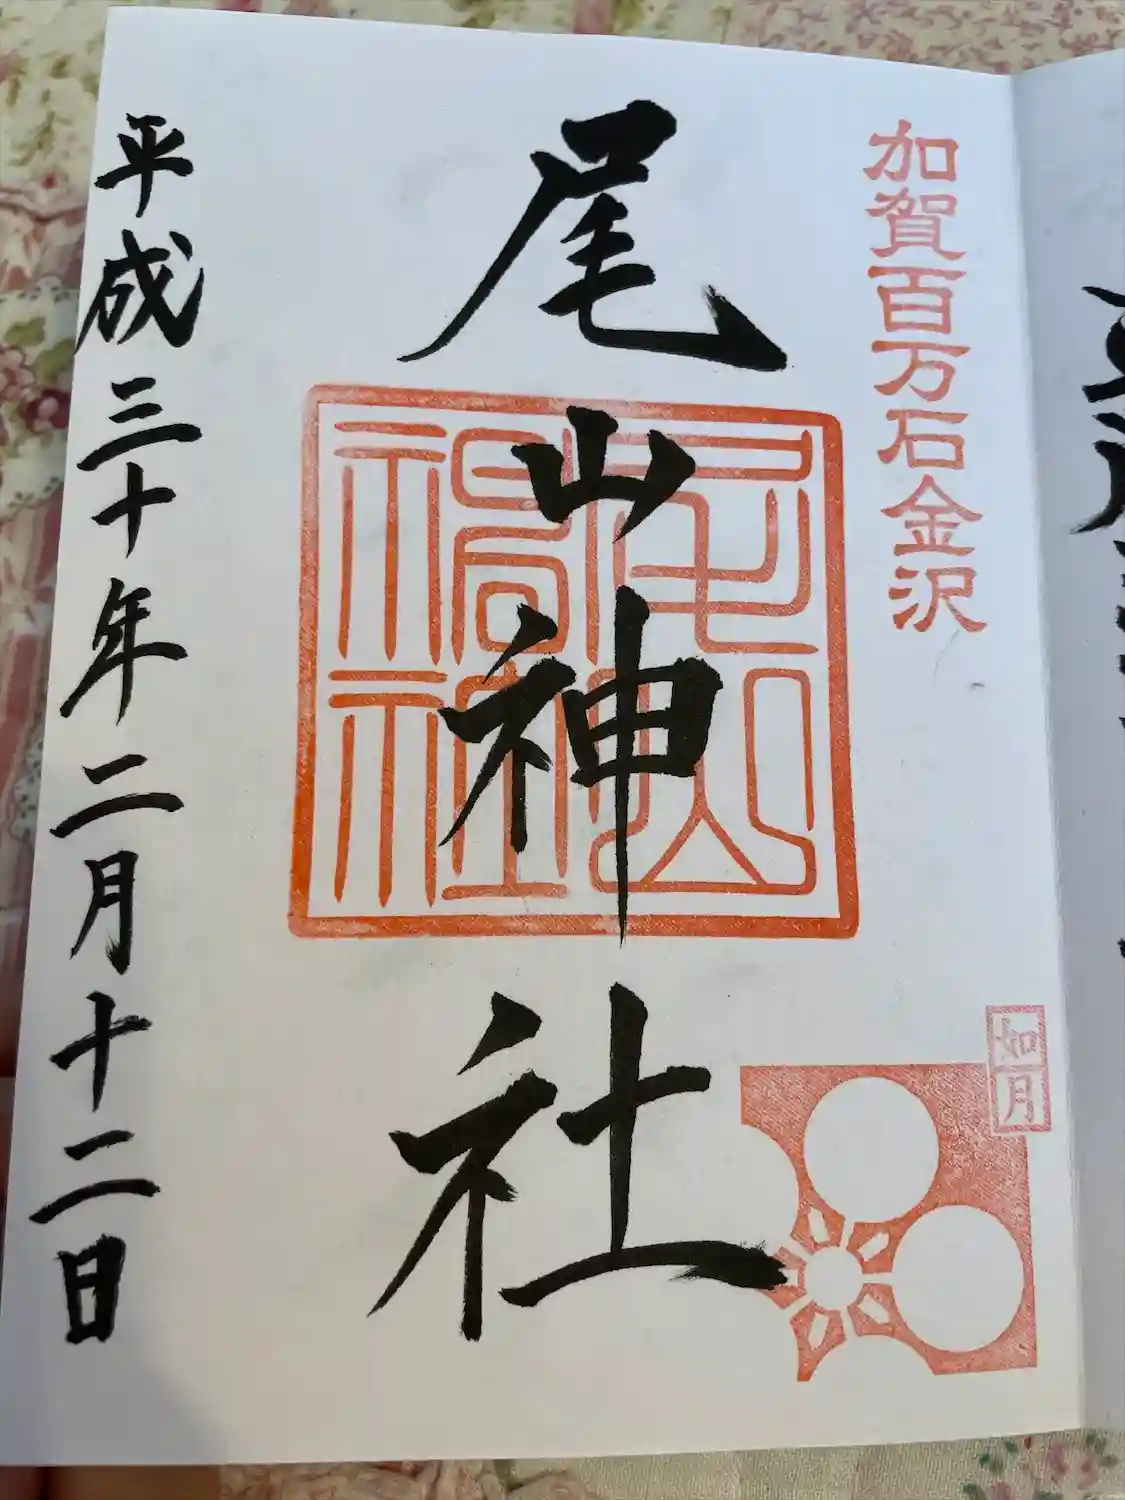 加賀百万石金沢
如月
尾山神社
尾山神社
平成三十年二月十二日